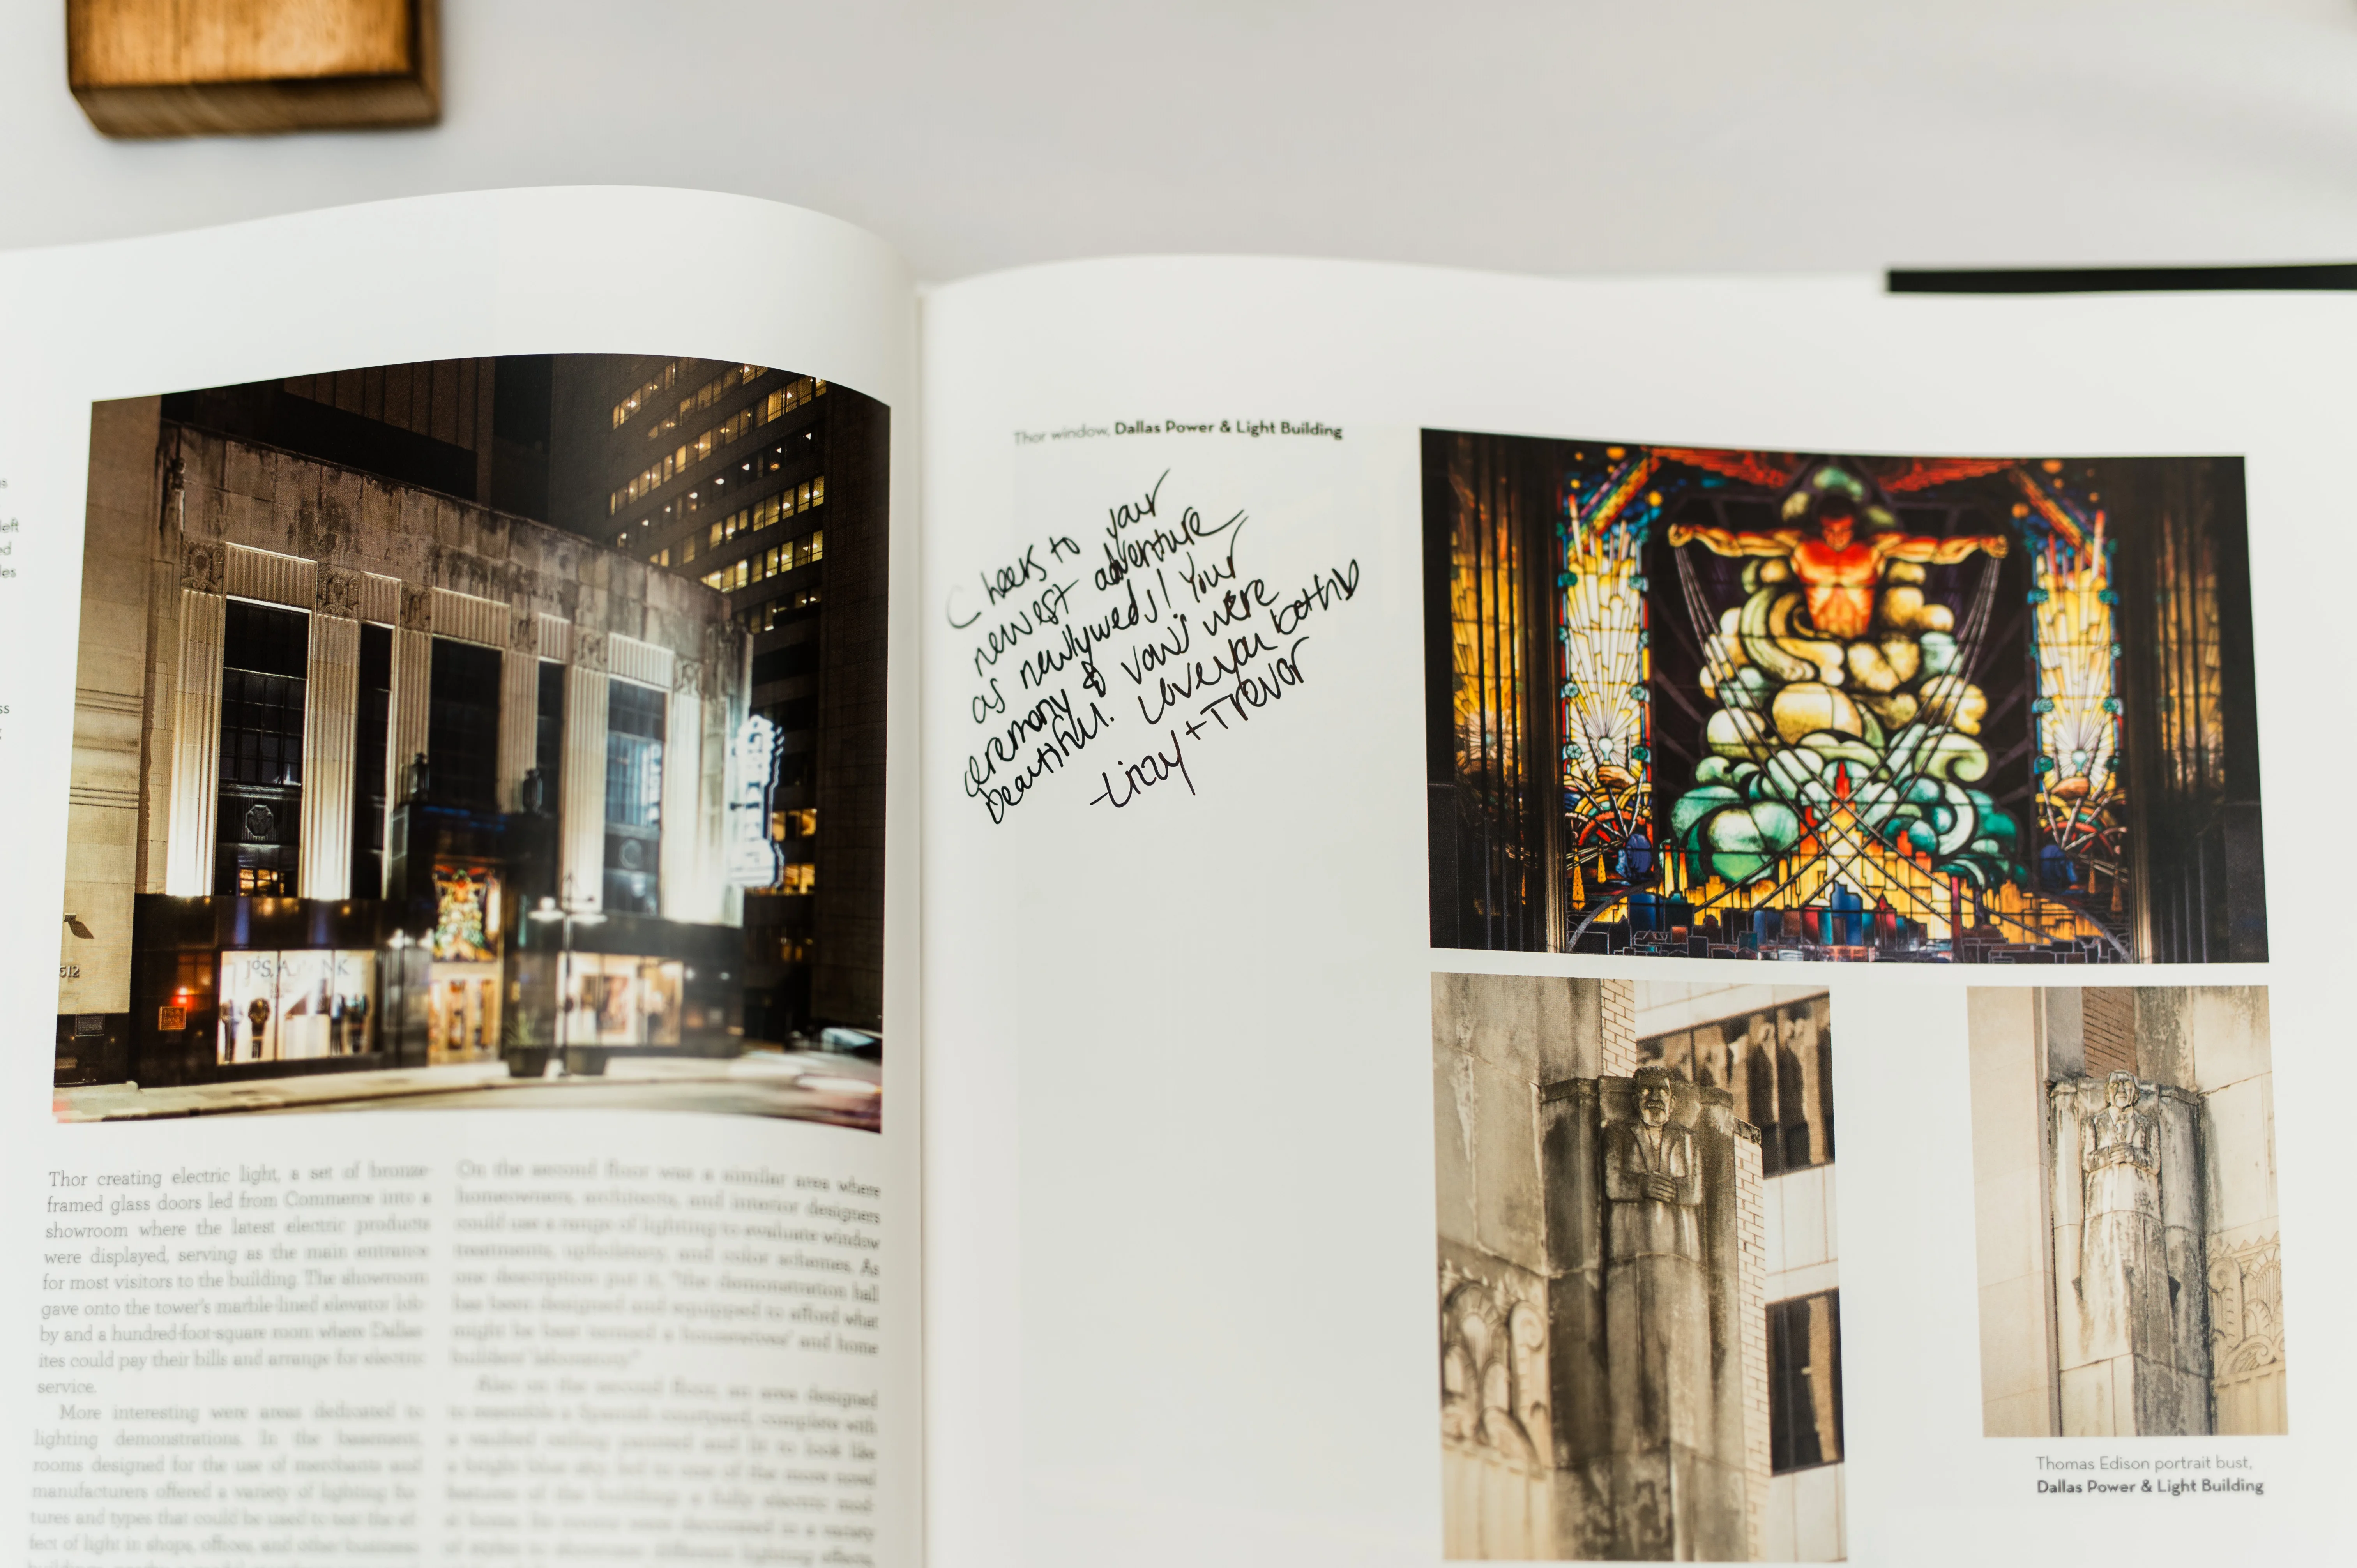 left
Thor creating electric light, a set of bronze-
framed glass doors led from Commerce into a
showroom where the latest electric products
were displayed, serving as the main entrance
for most visitors to the building. The showroom
gave onto the tower's marble-lined elevator lob-
by and a hundred-foot-square room where Dallas-
ites could pay their bills and arrange for electric
service.
More interesting were areas dedicated to
lighting demonstrations. In the basement,
rooms designed for the use of merchants and
manufacturers offered a variety of lighting fix-
tures and types that could be used to test the ef-
fect of light in shops, offices, and other business
On the second floor was a similar area where
homeowners, architects, and interior designers
could use a range of lighting to evaluate window
treatments, upholstery, and color schemes. As
one description put it, "the demonstration hall
has been designed and equipped to afford what
might be best termed a housewives' and home
builders' laboratory."
Also on the second floor, an area designed
to resemble a Spanish courtyard, complete with
a vaulted ceiling painted and lit to look like
a bright blue sky, led to one of the more novel
features of the building: a fully electric mod-
el home. Its rooms were decorated in a variety
of styles to showcase different lighting effects,
512
JOS. A. BANK
Thor window, Dallas Power & Light Building
Cheers to your
newest adventure
as newlyweds! Your
ceremony & vows were
beautiful. Love you both
-Linzy + Trevor
Thomas Edison portrait bust,
Dallas Power & Light Building